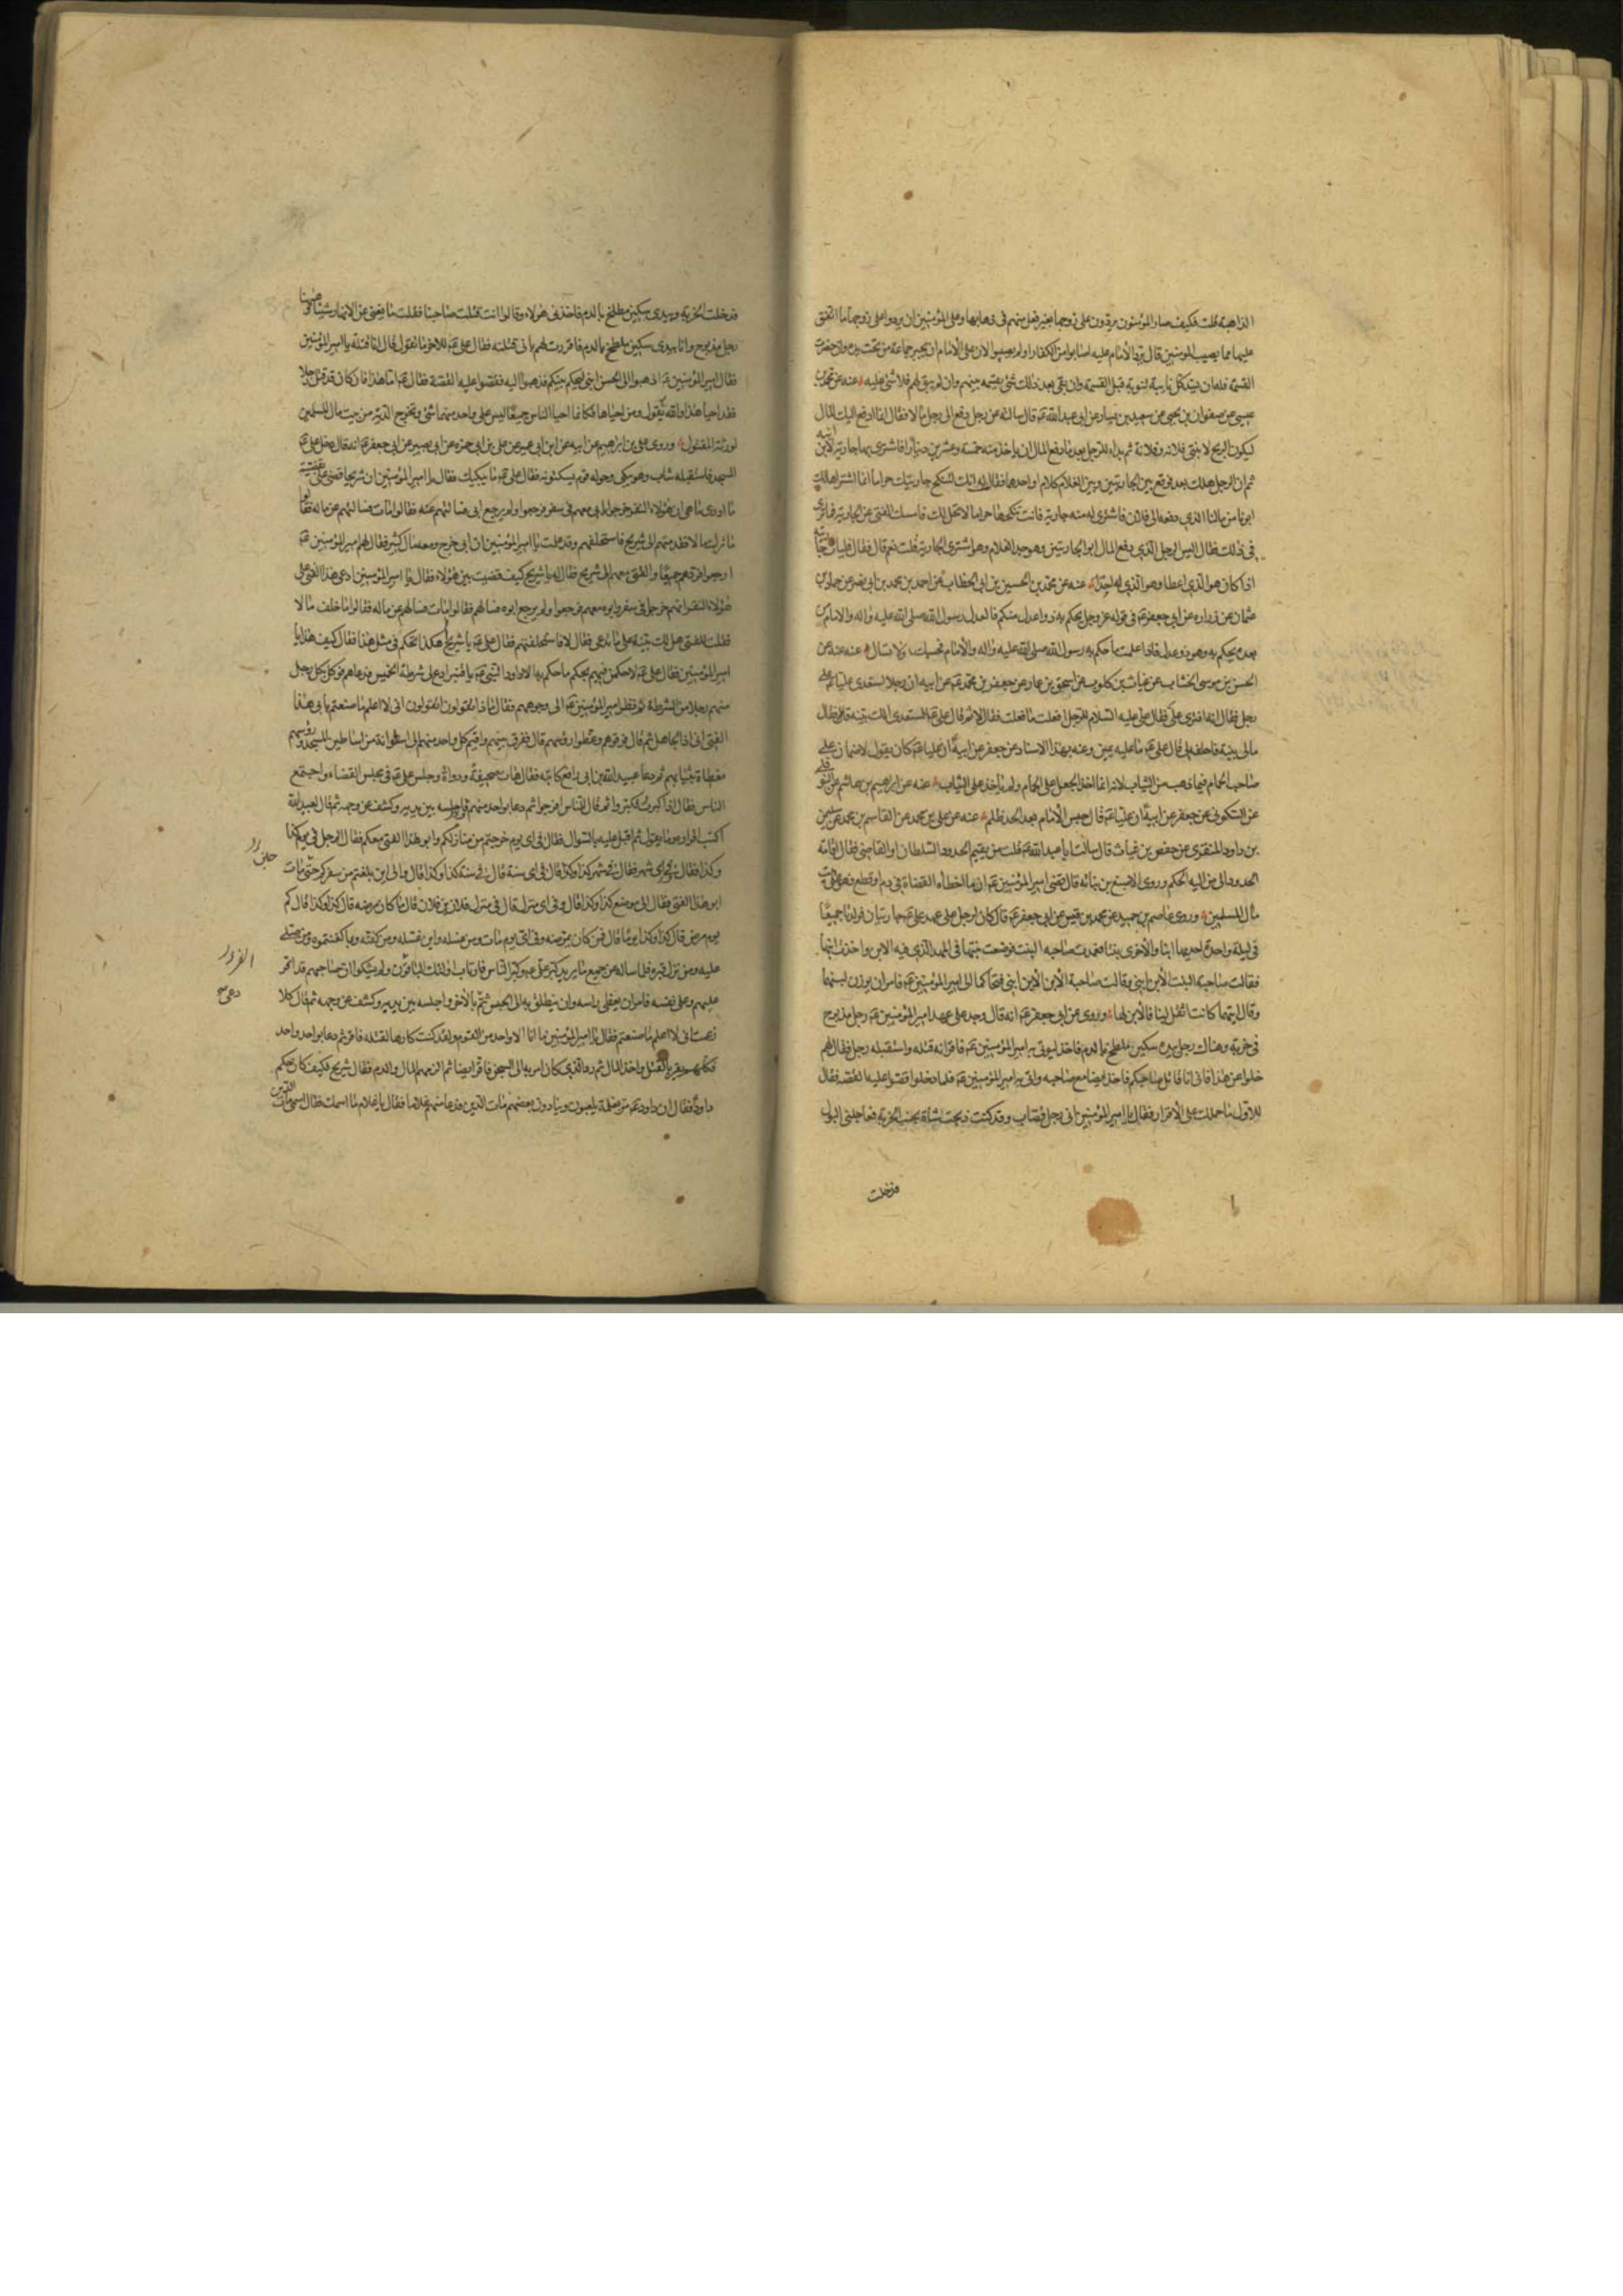 الذاهبة قلت فكيف صار المؤمنون يردون على زوجها بغير فعل منهم في ذهابها وعلى المؤمنين ان يردوا على زوجها ما انفق
عليها مما يصيب المؤمنين قال يرد الامام عليه اصابوا من الكفار او لم يصيبوا لان على الامام ان يجيز جماعة من تحت يده وان حضرت
القسمة فله ان يسد كل نايبة تنوبه قبل القسمة وان بقي بعد ذلك شئ يقسمه بينهم وان لم يبق لهم فلا شئ عليه عنه عن محمد بن
عيسى عن صفوان بن يحيى عن سعيد بن يسار عن ابي عبد الله ع قال سالته عن رجل دفع الى رجل مالا فقال انما ادفع اليك المال
ليكون الربح لابنتي فلانة وفلانة ثم بدا للرجل بعد ما دفع المال ان ياخذ منه خمسة وعشرين دينارا فاشترى بها جارية لابن ابنه
ثم ان الرجل هلك بعد فوقع بين الجاريتين وبين الغلام كلام او احدهما فقال له انك لتنكح جاريتك حراما انما اشتراها لك
ابونا من مالنا الذي دفعه الى فلان فاشترى له منه جارية فانت تنكحها حراما لا تحل لك فامسك الفتى عن الجارية فما ترى
في ذلك فقال اليس الرجل الذي دفع المال ابو الجاريتين وهو جد الغلام وهو اشترى الجارية قلت نعم قال فقال فليات جاريته
اذا كان هو الذي اعطا وهو الذي اخذ عنه عن محمد بن الحسين بن ابي الخطاب عن احمد بن محمد بن ابي نصر عن حماد بن
عثمان عن زرارة عن ابي جعفر ع في قوله عز وجل يحكم به ذوا عدل منكم فالعدل رسول الله صلى الله عليه واله والامام من
بعده يحكم به وهو ذو عدل فاذا علمت ما حكم به رسول الله صلى الله عليه واله والامام فحسبك ولا تسال عنه عنه عن
الحسن بن موسى الخشاب عن غياث بن كلوب عن اسحق بن عمار عن جعفر بن محمد ع عن ابيه ان رجلا استعدى عليا ع على
رجل فقال انه افترى علي فقال علي عليه السلام للرجل افعلت ما فعلت فقال لا ثم قال علي ع للمستعدي الك بينة قال فقال
مالي بينة فاحلفه لي قال علي ع ما عليه يمين وعنه بهذا الاسناد عن جعفر عن ابيه ان عليا ع كان يقول لا ضمان على
صاحب الحمام فيما ذهب من الثياب لانه انما اخذ الجعل على الحمام ولم ياخذ على الثياب عنه عن ابرهيم بن هاشم عن النوفلي
عن السكوني عن جعفر عن ابيه ان عليا ع قال حبس الامام بعد الحد ظلم عنه عن علي بن محمد عن القاسم بن محمد عن سليمن
بن داود المنقري عن حفص بن غياث قال سالت ابا عبد الله ع قلت من يقيم الحدود السلطان او القاضي فقال اقامة
الحدود الى من اليه الحكم وروى الاصبغ بن نباته قال قضى امير المؤمنين ع ان ما اخطأه القضاة في دم او قطع فعلى بيت
مال المسلمين وروى عاصم بن حميد عن محمد بن قيس عن ابي جعفر ع قال كان لرجل على عهد علي ع جاريتان فولدتا جميعا
في ليلة واحدة احديهما ابنا والاخرى بنتا فعمدت صاحبة البنت فوضعت بنتها في المهد الذي فيه الابن واخذت ابنها
فقالت صاحبة البنت الابن ابني وقالت صاحبة الابن الابن ابني فتحاكما الى امير المؤمنين ع فامر ان يوزن لبنهما
وقال ايتهما كانت اثقل لبنا فالابن لها وروى عن ابي جعفر ع انه قال وجد على عهد امير المؤمنين ع رجل مذبوح
في خربة وهناك رجل بيده سكين ملطخ بالدم فاخذ ليوتى به امير المؤمنين ع فاقر انه قتله واستقبله رجل فقال لهم
خلوا عن هذا فاني انا قاتل صاحبكم فاخذ ايضا مع صاحبه واتي به امير المؤمنين ع فلما دخلوا قصوا عليه القصة فقال
للاول ما حملك على الاقرار فقال يا امير المؤمنين اني رجل قصاب وقد كنت ذبحت شاة بجنب الخربة فعاجلني البول
فدخلت
فدخلت الخربة وبيدي سكين مطلخ بالدم فاخذني هؤلاء وقالوا انت قتلت صاحبنا فقلت ما يغني عني الانكار شيئا وههنا
رجل مذبوح وانا بيدي سكين ملطخ بالدم فاقررت لهم باني قتلته فقال علي ع للاخر ما تقول قال انا قتلته يا امير المؤمنين
فقال امير المؤمنين ع اذهبوا الى الحسن ابني ليحكم بينكم فذهبوا اليه فقصوا عليه القصة فقال ع اما هذا فان كان قد قتل رجلا
فقد احيا هذا والله يقول ومن احياها فكانما احيا الناس جميعا ليس على واحد منهما شئ وتخرج الدية من بيت مال المسلمين
لورثة المقتول وروى علي بن ابراهيم عن ابيه عن ابن ابي عمير عن علي بن ابي حمزة عن ابي بصير عن ابي جعفر ع انه قال دخل علي ع
المسجد فاستقبله شاب وهو يبكي وحوله قوم يسكتونه فقال علي ع ما يبكيك فقال يا امير المؤمنين ان شريحا قضى علي بقضية
ما ادري ما هي ان هؤلاء النفر خرجوا بابي معهم في سفر فرجعوا ولم يرجع ابي فسالتهم عنه فقالوا مات فسالتهم عن ماله فقالوا
ما ترك مالا فقدمتهم الى شريح فاستحلفهم وقد علمت يا امير المؤمنين ان ابي خرج ومعه مال كثير فقال لهم امير المؤمنين ع
ارجعوا فردهم جميعا والفتى معهم الى شريح فقال له يا شريح كيف قضيت بين هؤلاء فقال يا امير المؤمنين ادعى هذا الفتى على
هؤلاء النفر انهم خرجوا في سفر وابوه معهم فرجعوا ولم يرجع ابوه فسالتهم فقالوا مات فسالتهم عن ماله فقالوا ما خلف مالا
فقلت للفتى هل لك بينة على ما تدعي فقال لا فاستحلفتهم فقال علي ع يا شريح هكذا تحكم في مثل هذا فقال كيف هذا يا
امير المؤمنين فقال علي ع لاحكمن فيهم بحكم ما حكم به الا داود النبي ع يا قنبر ادع لي شرطة الخميس فدعاهم فوكل بكل رجل
منهم رجلا من الشرطة ثم نظر امير المؤمنين ع الى وجوههم فقال ماذا تقولون اتقولون اني لا اعلم ما صنعتم بابي هذا
الفتى اني اذا لجاهل ثم قال فرقوهم وغطوا رؤسهم قال ففرق بينهم واقيم كل واحد منهم الى اسطوانة من اساطين المسجد ورؤسهم
مغطاة بثيابهم ثم دعا عبيد الله بن ابي رافع كاتبه فقال هات صحيفة ودواة وجلس علي ع في مجلس القضاء واجتمع
الناس فقال اذا كبرت فكبروا ثم قال للناس افرجوا ثم دعا بواحد منهم فاجلسه بين يديه وكشف عن وجهه ثم قال لعبيد الله
اكتب اقراره وما يقول ثم اقبل عليه بالسوال فقال في اي يوم خرجتم من منازلكم وابو هذا الفتى معكم فقال الرجل في يوم كذا
وكذا فقال وفي اي شهر فقال في شهر كذا وكذا قال في اي سنة قال في سنة كذا وكذا قال والى اين بلغتم من سفركم حتى مات
ابو هذا الفتى فقال الى موضع كذا وكذا قال وفي اي منزل قال في منزل فلان بن فلان قال ما كان مرضه قال كذا وكذا قال كم
يوم مرض قال كذا وكذا يوما قال فمن كان يمرضه وفي اي يوم مات ومن غسله واين غسله ومن كفنه وبما كفنتموه ومن صلى
عليه ومن نزل قبره فلما ساله عن جميع ما يريد كبر علي ع وكبر الناس فارتاب اولئك الباقون ولم يشكوا ان صاحبهم قد اقر
عليهم وعلى نفسه فامر ان يغطى راسه وان ينطلق به الى الحبس ثم دعا بالاخر واجلسه بين يديه وكشف عن وجهه ثم قال كلا
زعمت اني لا اعلم ما صنعتم فقال يا امير المؤمنين ما انا الا واحد من القوم ولقد كنت كارها لقتله فاقر ثم دعا بواحد واحد
فكلهم يقر بالقتل واخذ المال ثم رد الذي كان امر به الى السجن فاقر ايضا ثم الزمهم المال والدم فقال شريح فكيف كان حكم
داود فقال ان داود ع مر بغلمة يلعبون وينادون بعضهم مات الدين فدعا منهم غلاما فقال يا غلام ما اسمك فقال اسمي مات الدين